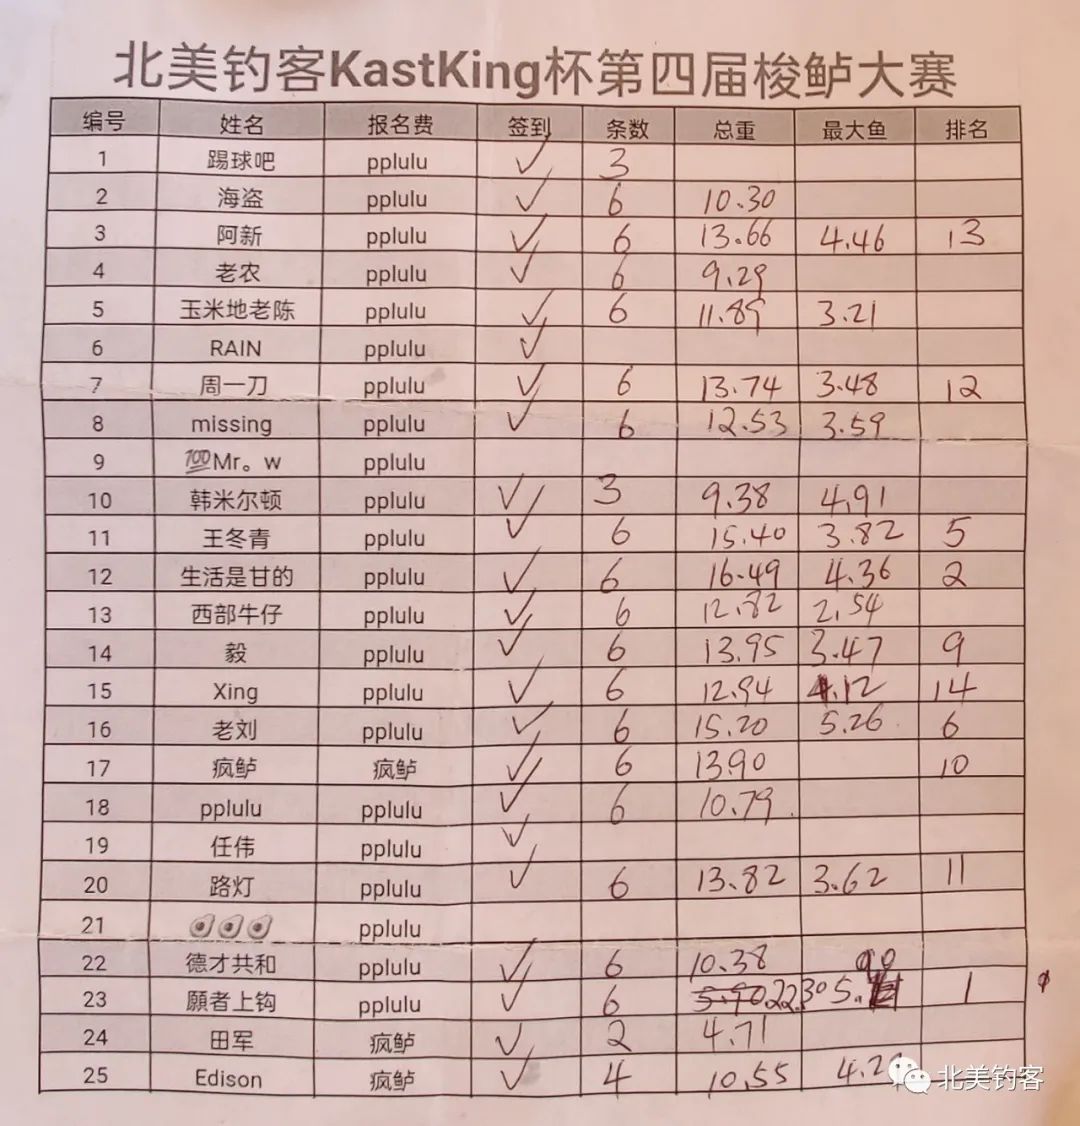 北美钓客KastKing杯第四届梭鲈大赛
编号 姓名 报名费 签到 条数 总重 最大鱼 排名
1 踢球吧 pplulu ✓ 3
2 海盗 pplulu ✓ 6 10.30
3 阿新 pplulu ✓ 6 13.66 4.46 13
4 老农 pplulu ✓ 6 9.29
5 玉米地老陈 pplulu ✓ 6 11.89 3.21
6 RAIN pplulu ✓
7 周一刀 pplulu ✓ 6 13.74 3.48 12
8 missing pplulu ✓ 6 12.53 3.59
9 💯Mr。w pplulu
10 韩米尔顿 pplulu ✓ 3 9.38 4.91
11 王冬青 pplulu ✓ 6 15.40 3.82 5
12 生活是甘的 pplulu ✓ 6 16.49 4.36 2
13 西部牛仔 pplulu ✓ 6 12.82 2.54
14 毅 pplulu ✓ 6 13.95 3.47 9
15 Xing pplulu ✓ 6 12.94 4.12 14
16 老刘 pplulu ✓ 6 15.20 5.26 6
17 疯鲈 疯鲈 ✓ 6 13.90 10
18 pplulu pplulu ✓ 6 10.79
19 任伟 pplulu ✓
20 路灯 pplulu ✓ 6 13.82 3.62 11
21 🥑🥑🥑 pplulu
22 德才共和 pplulu ✓ 6 10.38
23 願者上钩 pplulu ✓ 6 5.90 22.30 5.90 1
24 田军 疯鲈 ✓ 2 4.71
25 Edison 疯鲈 ✓ 4 10.55
北美钓客